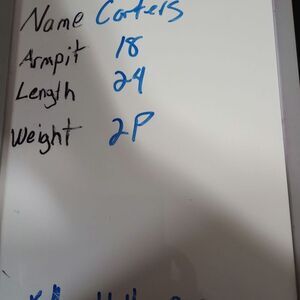 Name Carters
Armpit 18
Length 24
Weight 2P